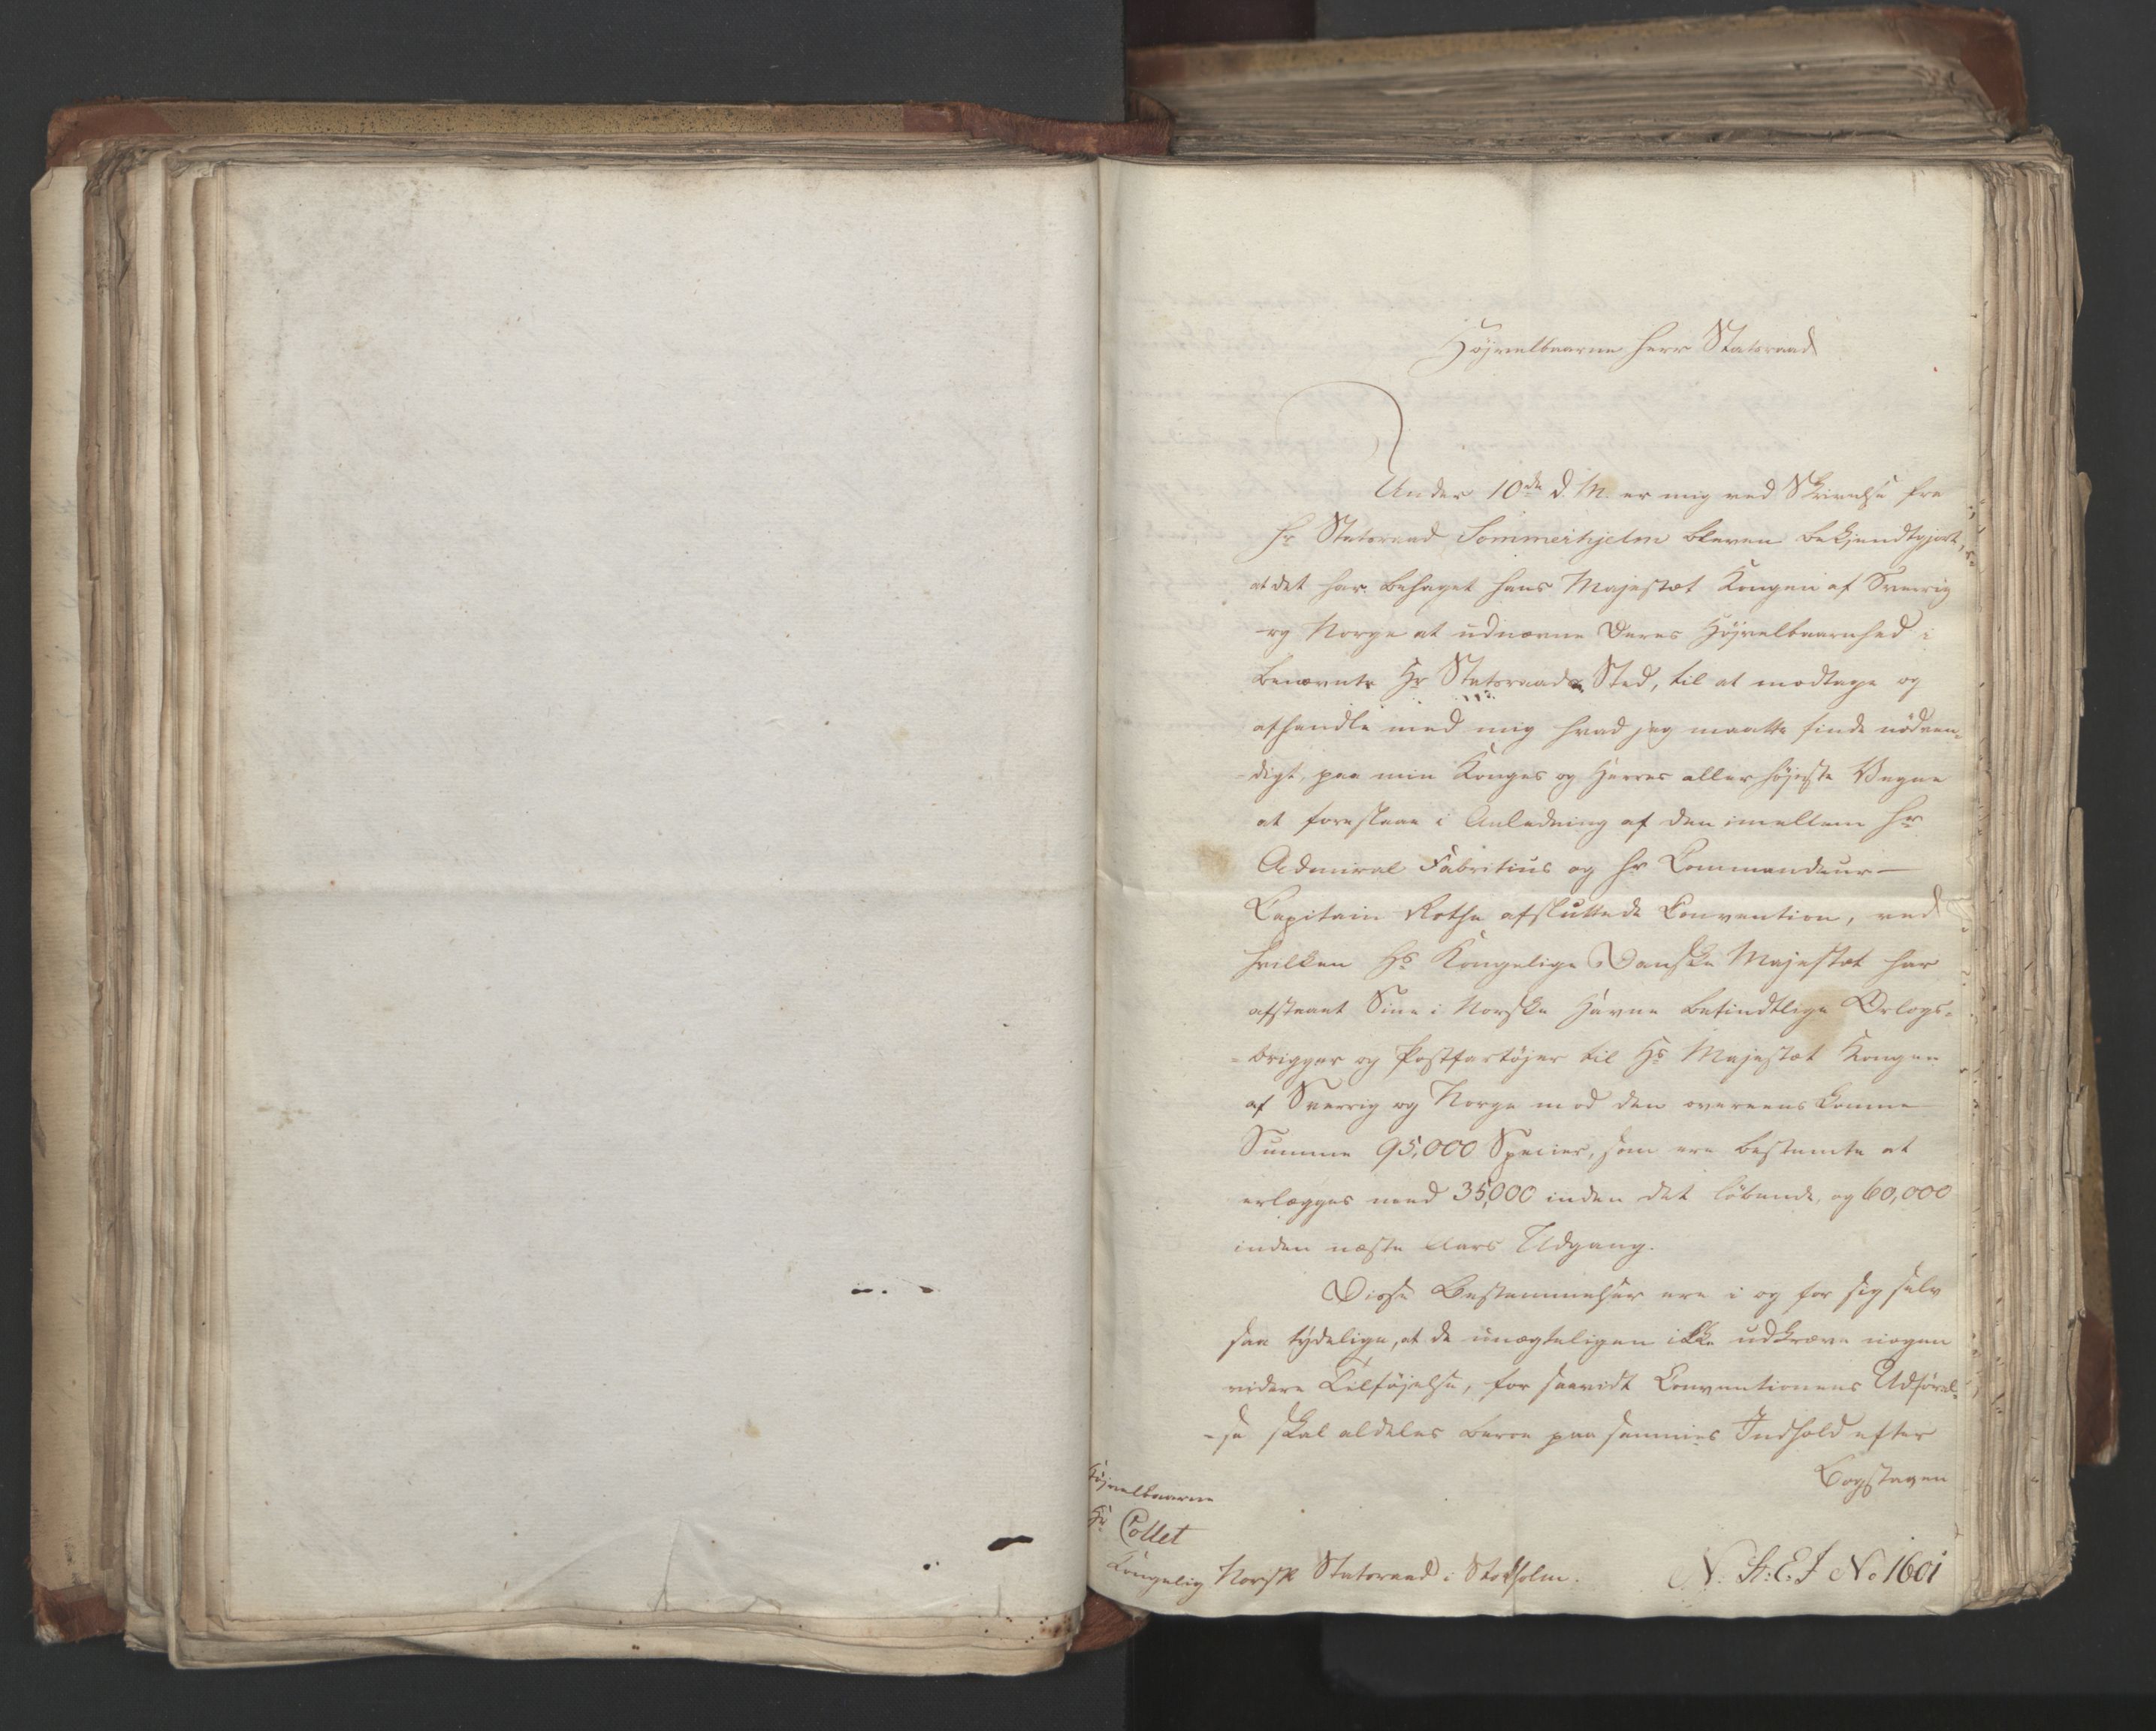 Højvelbaarne Herr Statsraad
Under 10de d. M. er mig ved Skrivelse fra
Hr Statsraad Sommerhjelm bleven bekjendtgjort,
at det har behaget Hans Majestæt Kongen af Sverrig
og Norge at udnævne Deres Højvelbaarnhed i
benævnte Hr Statsraads Sted, til at modtage og
afhandle med mig hvad jeg maatte finde nödven-
-digt, paa min Konges og Herres allerhöjeste Vegne
at foreslaae i Anledning af den imellem Hr
Admiral Fabritius og Hr Commandeur-
Capitain Rothe afsluttede Convention, ved
hvilken Hs Kongelige Danske Majestæt har
afstaaet Sine i Norske Havne befindtlige Orlogs-
-brigger og Postfartöjer til Hs Majestæt Kongen
af Sverrig og Norge mod den overeenskomne
Summe 95,000 Species, som ere bestemte at
erlægges med 35,000 inden det löbende, og 60,000
inden næste Aars Udgang.
Disse Bestemmelser ere i og for sig selv
saa tydelige, at de unægteligen ikke udkræve nogen
videre Tilföjelse, for saavidt Conventionens Udförel-
-se skal aldeles beroe paa sammes Indhold efter
Bogstaven
Højvelbaarne
Hr Collet
Kongelig Norsk Statsraad i Stockholm.
N. St: E. J No 1601